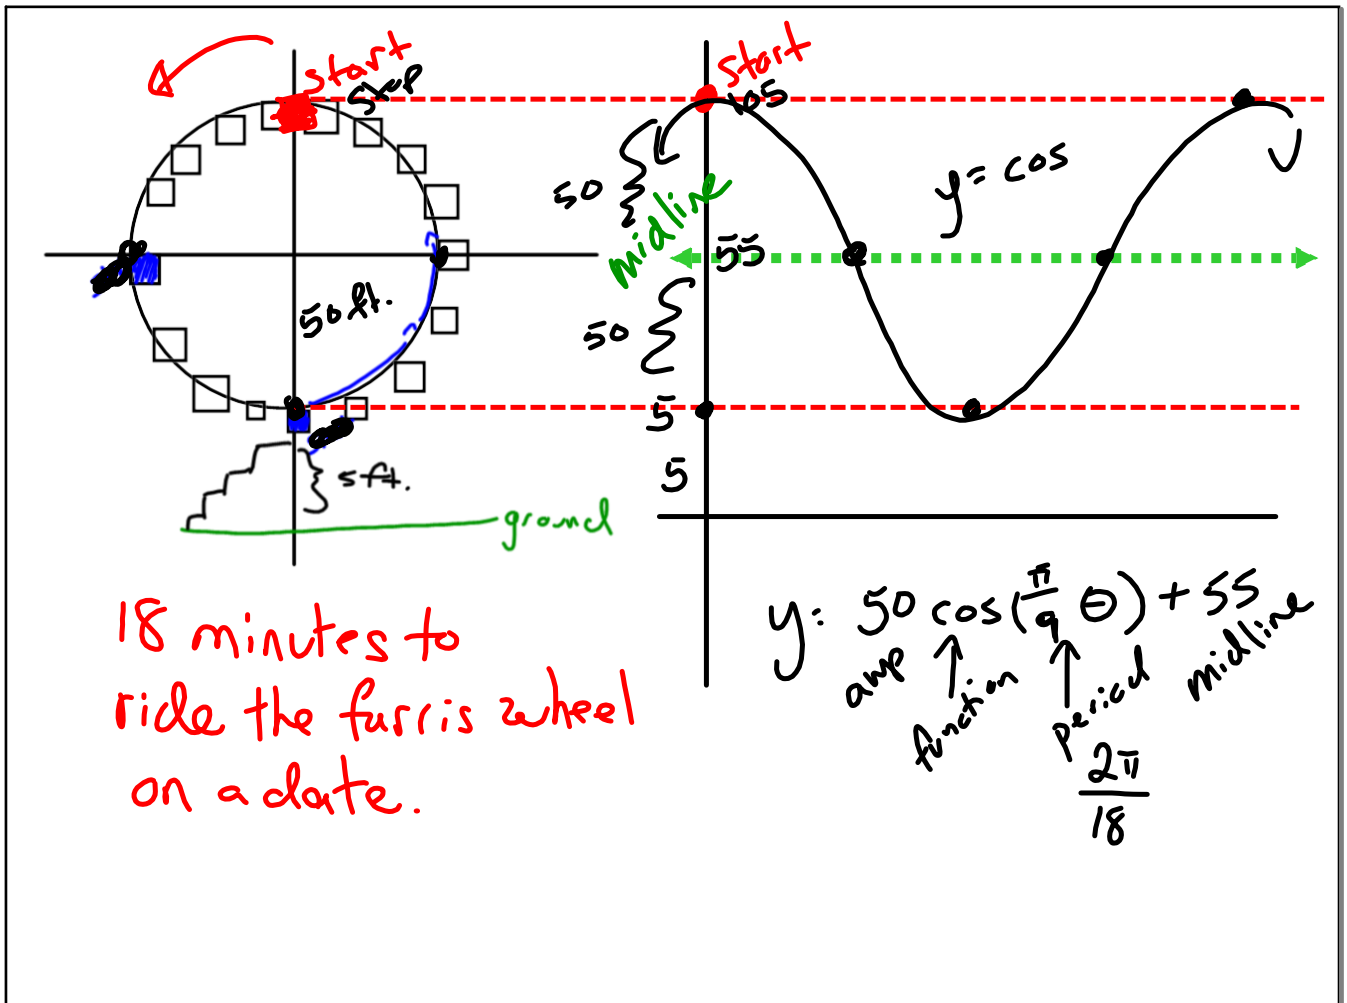 start
stop
50 ft.
5ft.
ground
start
105
50
midline
55
50
5
5
y= cos
18 minutes to
ride the furris wheel
on a date.
y: 50 cos(π/9 θ) + 55
amp
function
period
midline
2π
18